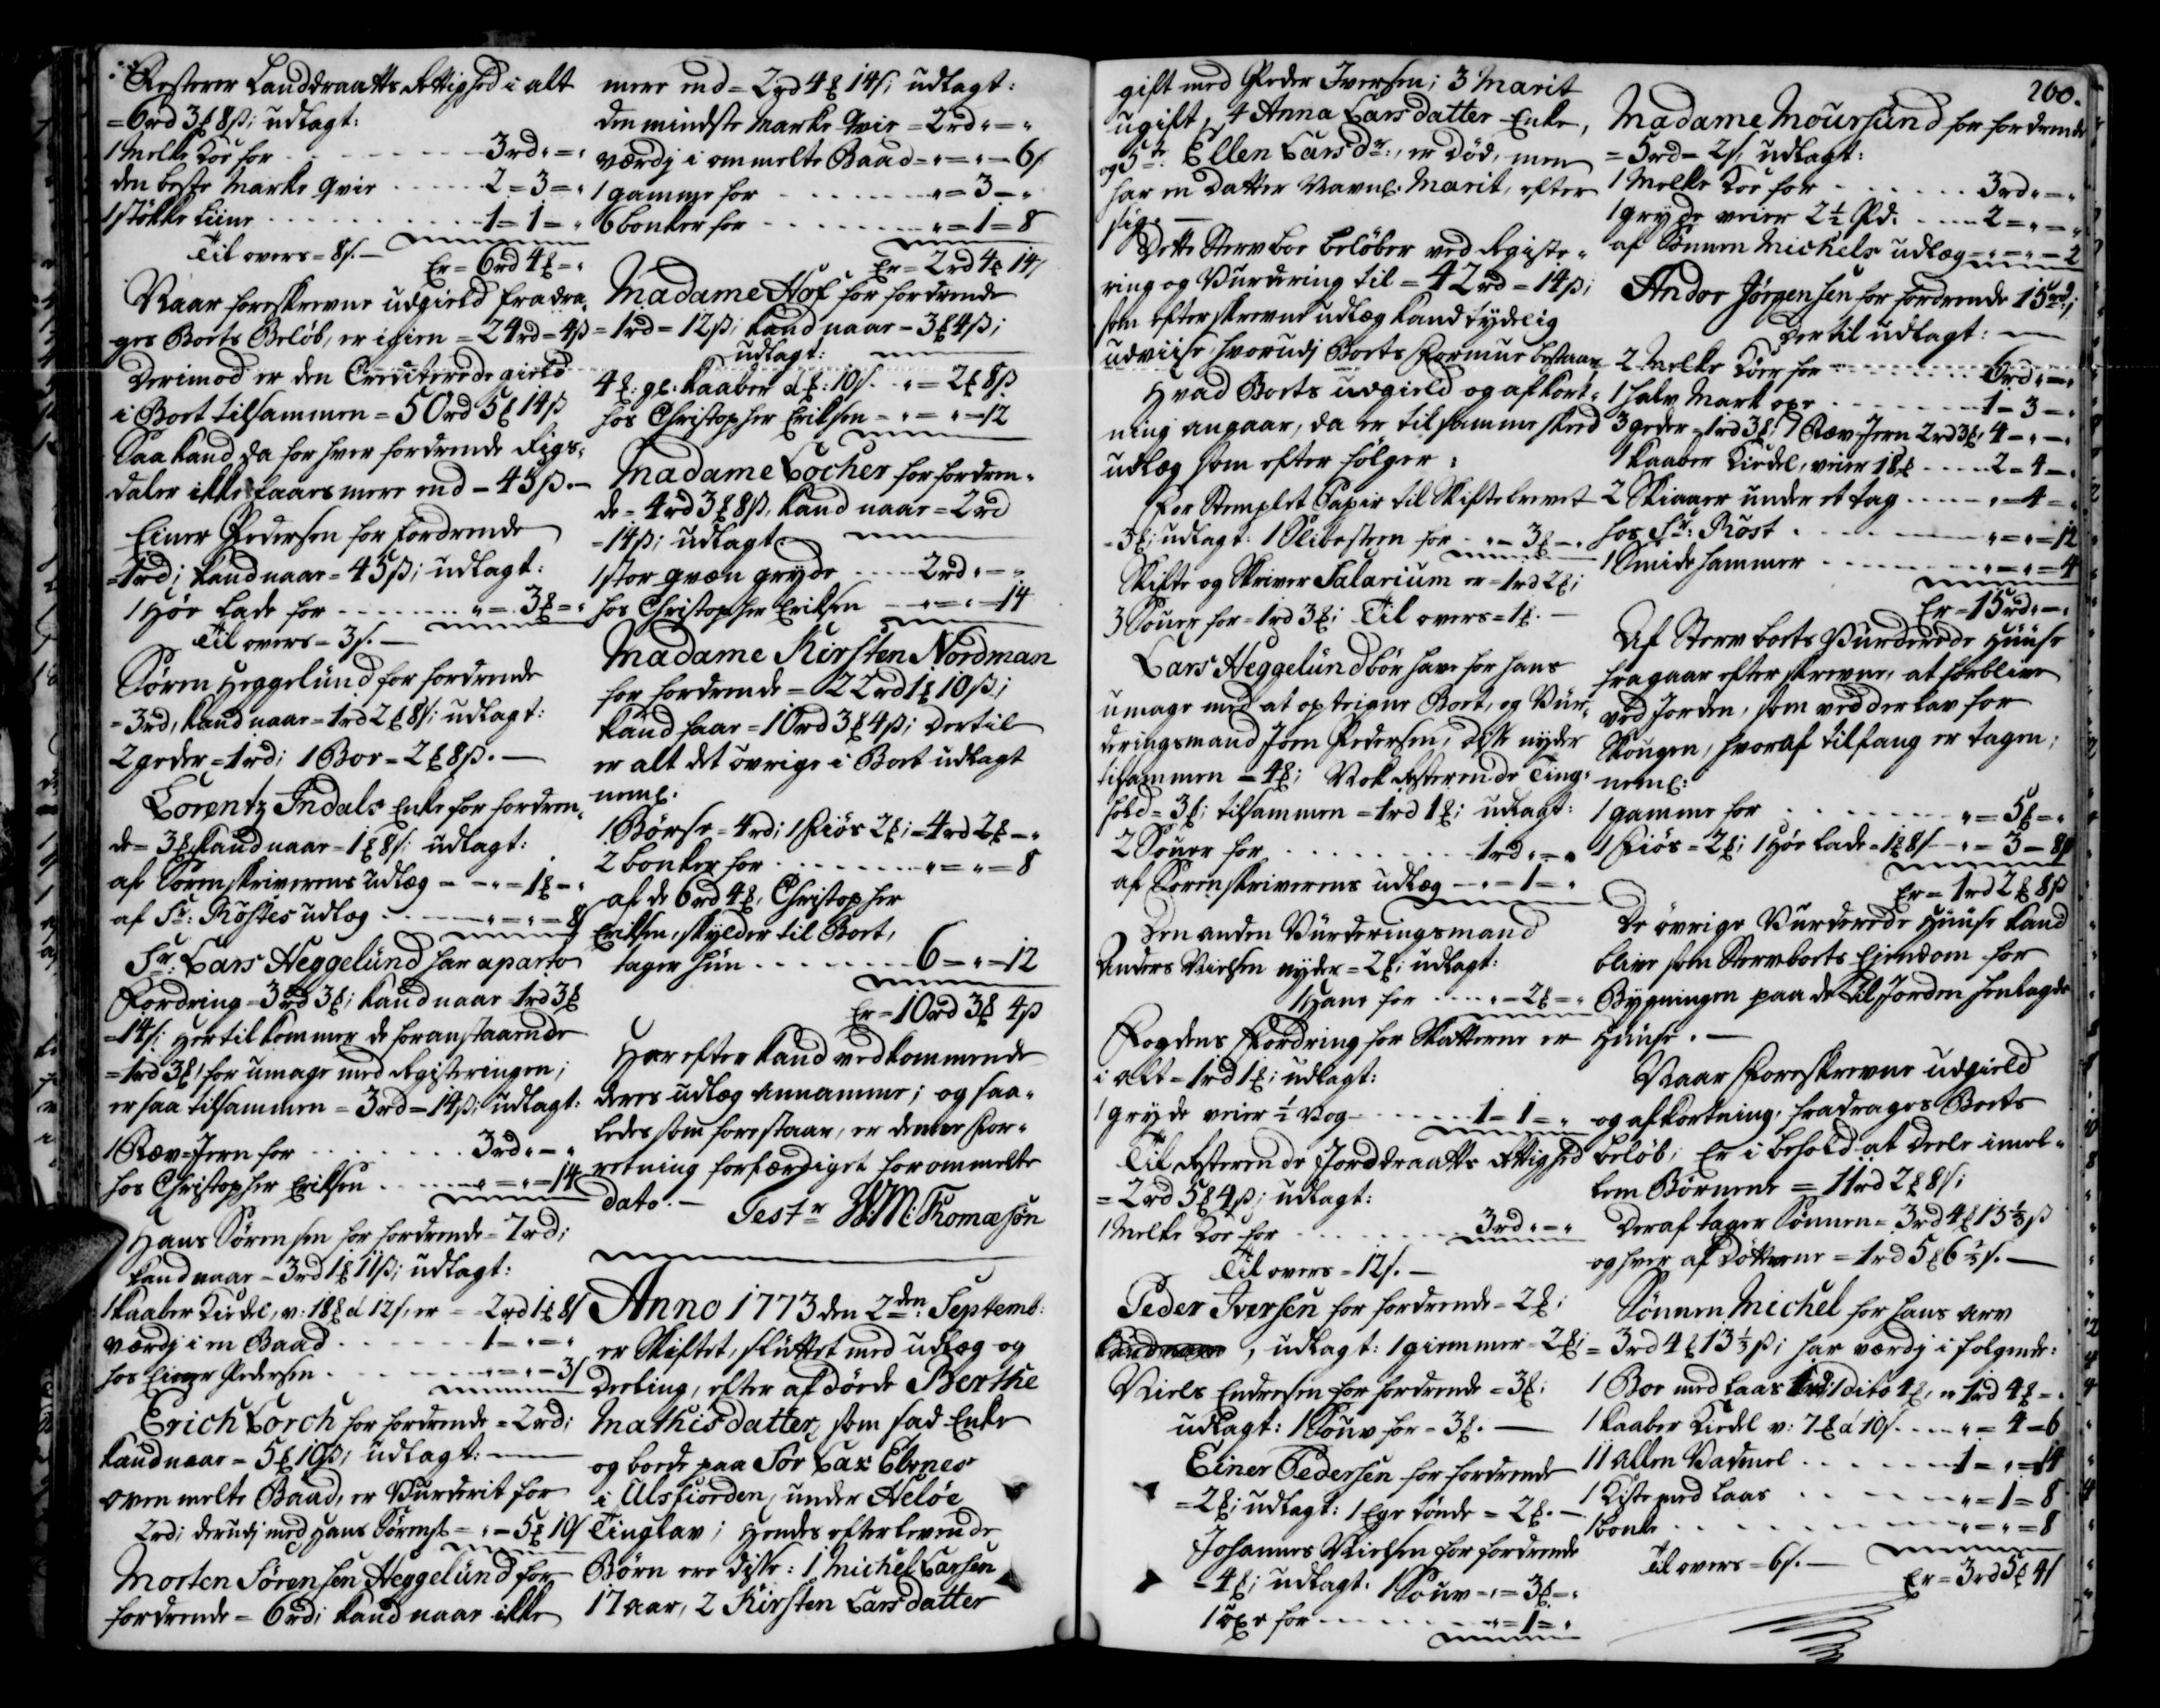 Resterer Landdraatts Rettighed i alt
=6rd 3₰ 8ß; udlagt:
1 Melke Koe for . . . 3rd„=„
den beste Marke Qvie . . . 2=3=„
1 støkke Kiine . . . 1=1=„
Til overs=8ß.—
Er=6rd 4₰=„
Naar foreskrevne udgield fradra-
ges Boets Beløb, er igien =24rd=4ß
Derimod er den Crediterede gield
i Boet tilsammen=50rd 5₰ 14ß
Saa kand da for hver fordrende Rigs-
daler ikke faaes mere end=45ß.—
Einer Pedersen for fordrende
=1rd; kand naae=45ß; udlagt:
1 Høe Lade for . . . „=3₰=„
Til overs=3ß.—
Søren Heggelund for fordrende
=3rd, kand naae=1rd 2₰ 8ß; udlagt:
2 geder=1rd; 1 Boe=2₰ 8ß.—
Lorentz Indals Enke for fordren-
de=3₰ kand naae=1₰ 8ß; udlagt:
af Sorenskriverens Udlæg — „=1₰=„
af Sr: Røstes udlæg . . . „=„=8ß
Sr: Lars Heggelund har aparte
Fordring=3rd 3₰; kand naae 1rd 3₰
=14ß; hertil kommer de foranstaaende
=1rd 3₰ for umage med Registeringen;
er saa tilsammen=3rd=14ß; udlagt:
1 Ræv=Jern for . . . 3rd„=„
hos Christopher Eriksen . . . „=„=14
Hans Sørensen for fordrende=7rd;
kand naae=3rd 1₰ 11ß; udlagt:
1 Kaaber Kiedel, v: 18₰ á 12ß, er=2rd 1₰ 8ß
værdj i en Baad . . . 1=„=„
hos Einer Pedersen . . . „=„=3ß
Erich Lorch for fordrende=2rd;
kand naae=5₰ 10ß; udlagt:—
oven melte Baad, er Vurderit for
2rd; derudj med Hans Sørens:=„=5₰ 10ß
Morten Sørensen Heggelund for
fordrende=6rd; kand naae ikke
mere end=2rd 4₰ 14ß; udlagt:
den mindste Marke Qvie=2rd„=„
værdj i ommelte Baad=„=„=6ß
1 gamme for . . . „=3=„
6 bonker for . . . „=1=8
Er=2rd 4₰ 14ß
Madame Hof for fordrende
=1rd=12ß; kand naae=3₰ 4ß;
udlagt:
4₰: gl: kaaber á₰: 10ß. „=2₰ 8ß
hos Christopher Eriksen=„=„=12
Madame Locher for fordren-
de=4rd 3₰ 8ß, kand naae=2rd
=14ß; udlagt
1 stor gryde . . . 2rd„=„
hos Christopher Eriksen — „=„=14
Madame Kirsten Nordman
for fordrende=22rd 1₰ 10ß;
kand faae=10rd 3₰ 4ß; Dertil
er alt det øvrige i Boet udlagt
neml:
1 Børse=4rd; 1 Fiøs 2₰;=4rd 2₰=„
2 bonker for . . . „=„=8
af de 6rd 4₰, Christopher
Eriksen, skylder til Boet,
tager hun . . . 6=„=12
Er=10rd 3₰ 4ß
Her efter kand vedkommende
deres udlæg annamme; og saa-
ledes som forestaar, er denne For-
retning forfærdiget forommelte
dato.— Test: W:M: Thomæsøn
Anno 1773 den 2den: Septemb:
er Skiftet, sluttet med udlæg og
Deeling, efter afdøde Berthe
Mathisdatter, som sad Enke
og boede paa Sør Lax Elvenes
i Ulsfiorden, under Helöe
Tinglav; Hendes efterlevende
Børn ere disse: 1 Michel Larsen
17 aar, 2 Kirsten Larsdatter
gift med Peder Iversen; 3 Marit
ugift, 4 Anna Larsdatter Enke,
og 5te: Ellen Larsdr:, er Død, men
har en Datter Navnl: Marit, efter
sig.—
Dette Sterv boe beløber ved Registe-
ring og Vurdering til=42rd=14ß;
som efterskrevne udlæg kand tydelig
udviise, hvorudj Boets Formue bestaar
Hvad Boets udgield og afkort-
ning angaar, da er til samme skeed
udlæg som efter følger:
For Stemplet Papir til Skiftebrevet
=3₰; udlagt: 1 Slibesteen for „=3₰=„
Skifte og Skriver Salarium er=1rd 2₰;
3 Souer for=1rd 3₰; Til overs=1₰.—
Lars Heggelund bør have for hans
umage med at opteigne Boet, og Vur-
deringsmand Joen Pedersen, disse nyder
tilsammen=4₰; Nok Resterende Ting-
hold=3₰; tilsammen=1rd 1₰; udlagt:
2 Souer for . . . 1rd„=„
af Sorenskriverens udlæg — „=1=„
Den anden Vurderingsmand
Anders Nielsen nyder=2₰; udlagt:
1 Hane for . . . „=2₰=„
Fogdens Fordring for Skatterne er
i alt=1rd 1₰; udlagt:
1 gryde veier ½ Vog . . . 1=1=„
Til Resterende Jorddraatts Rettighed
=2rd 5₰ 4ß; udlagt:
1 Melke Koe for . . . 3rd„=„
Til overs=12ß.—
Peder Iversen for fordrende=2₰;
, udlagt: 1 giemmer=2₰;
Niels Endresen for fordrende=3₰;
udlagt: 1 Souv for=3₰.—
Einer Pedersen for fordrende
=2₰; udlagt: 1 Ege tønde=2₰.—
Johannes Nielsen for fordrende
=4₰; udlagt: 1 Souv=„=3₰=„
1 öxe for . . . „=1=„
260.
Madame Moursund for fordrende
=5rd=2ß, udlagt:
1 Melke Koe for . . . 3rd„=„
1 gryde veier 2½ Pd: . . . 2=„=„
af Sønnen Michels udlæg=„=„=2
Andor Jørgensen for fordrende 15rd;
Dertil udlagt:—
2 Melke Køer for . . . 6rd„=„
1 halv Mark oxe . . . 1=3=„
3 geder=1rd 3₰; 1 Ræv=Jern 2rd 3₰, 4=„=„
1 Kaaber Kiedel, veier 18₰ . . . 2=4=„
2 Skiaaer under et tag . . . „=4=„
hos Sr: Röst . . . „=„=12
1 Smide hammer . . . „=„=4
Er=15rd„=„
Af Sterv boets Vurderede Huuse
fragaar efterskrevne, at forblive
ved Jorden, som vedderlav for
Skougen, hvoraf tilfang er tagen;
neml:
1 gamme for . . . „=5₰=„
1 Fiös=2₰; 1 Høe Lade=1₰ 8ß — „=3=8ß
Er=1rd 2₰ 8ß
De övrige Vurderede Huuse kand
blive som Stervboets Eiendom for
Bygningen paa de til Jorden henlagde
Huuse.—
Naar Foreskrevne udgield
og afkortning, fradrages Boets
beløb; Er i behold at deele imel-
lem Børnene=11rd 2₰ 8ß;
Deraf tager Sönnen=3rd 4₰ 13⅓ß
og hver af Døttrene=1rd 5₰ 6⅔ß.—
Sönnen Michel for hans arv
=3rd 4₰ 13⅓ß; har værdj i følgende:
1 Boe med Laas 1rd; 1 dito 4₰, er 1rd 4₰=„
1 Kaaber Kiedel v: 7₰ á 10ß . . . „=4=6
11 Allen Vadmel . . . 1=„=14
1 Kiste med Laas . . . „=1=8
1 bonke . . . „=„=8
Til overs=6ß.—
Er=3rd 5₰ 4ß